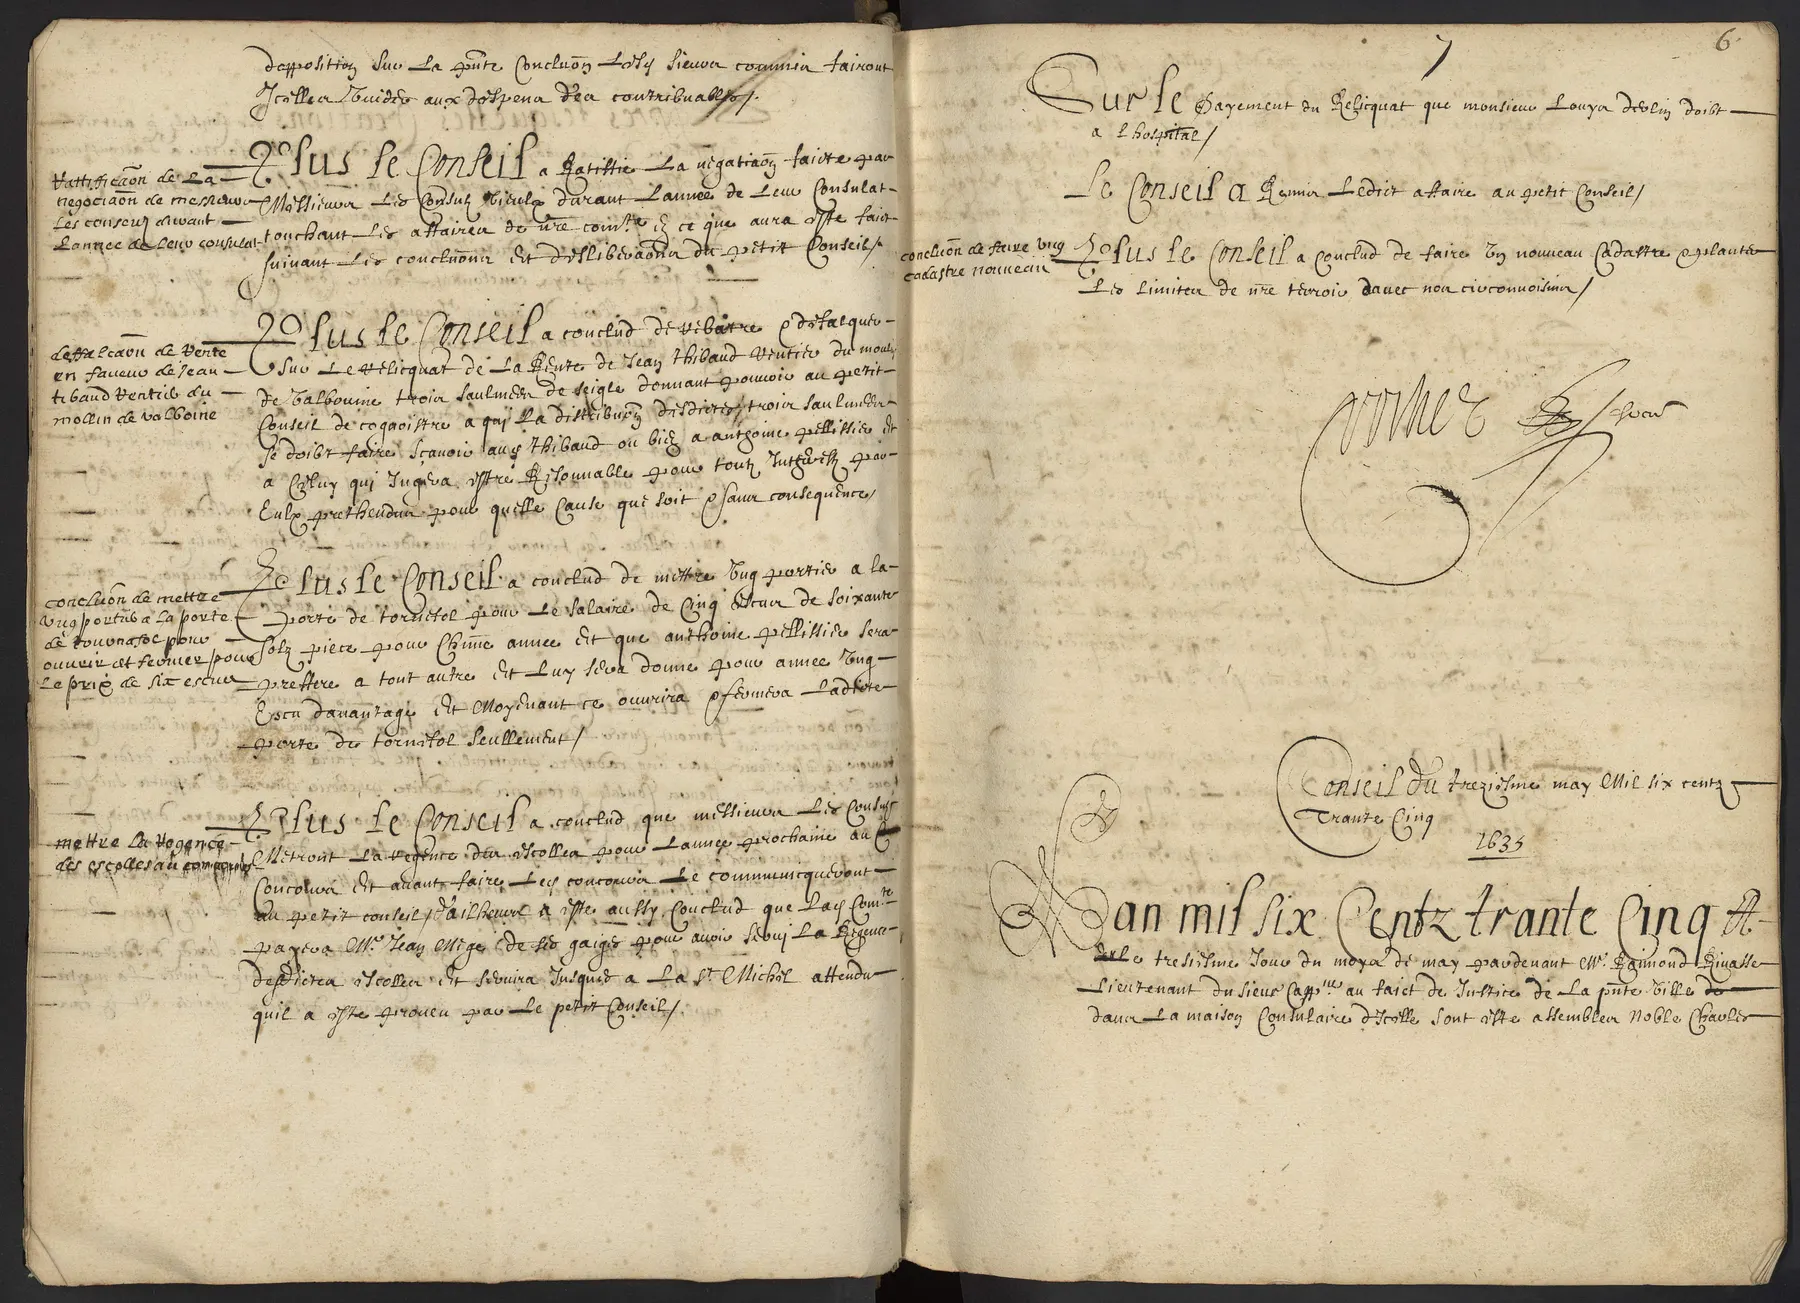 dapposition sur la pnte Concluon lesd sieurs commis fairont
Icelles vuider aux despens des contribuables /.
Rattificaon de la
negociaon de messieurs
les conseulz durant
lannee de leur consulat
Plus le Conseil a Ratiffie la negatiaon faicte par
Messieurs les Consulz vieulx durant lannee de leur Consulat
touchant les affaires de nre comte Et ce que aura este faict
suivant les concluons Et deslibeaons du petit Conseil /.
deffalcaon de rente
en faveur de Jean
tibaud rentier du
mollin de valboine
Plus le Conseil a conclud de rebatre & defalquer
sur le relicquat de la Rente de Jean Thibaud rentier du moulin
de Valbouine trois saulmees de seigle donnant pouvoir au petit
Conseil de cognoistre a quj la distribuon desdictes trois saulmees
se doibt faire sçavoir aud Thibaud ou bien a anthoine pellissier Et
a Celuy quj Jugera estre Resonnable pour toutz Intherestz par
Eulx prethendus pour quelle Cause que soit & sans consequence /
concluon de mettre
ung portier a la porte
de tournafol pour
ouvrir et fermer pour
le prix de six escus
Plus le Conseil a conclud de mettre Ung portier a la
porte de tornefol pour le salaire de Cinq Escus de soixante
solz piece pour Chune annee Et que anthoine pellissier sera
preffere a tout autre Et luy sera donne pour annee Ung
Escu davantage Et Moyenant ce ouvrira & fermera ladicte
porte de tornefol seullement /
mettre la regence
des escolles au concours
Plus le Conseil a conclud que messieurs les Consulz
Metront la regence des escolles pour lannee prochaine au
Concours Et avant faire led concours le communicqueront
au petit conseil / dailheurs a este aussy Conclud que lad Comte
payera Mr Jean Mege de ses gaiges pour avoir servj la Regence
desdictes escolles Et servira Jusques a la St Michel attendu
quil a este prouveu par le petit Conseil /.
7
6
Sur le Payement du Relicquat que monsieur Louys doibt
a lhospital /
Le Conseil a Remis Ledict affaire au petit Conseil /
concluon de faire ung
cadastre nouveau
Plus le Conseil a conclud de faire Un nouveau Cadastre & planter
les limites de nre terroir davec nos circonvoisins /
Conseil du trezisme may Mil six centz
Trante Cinq
1635
Lan mil six Centz trante Cinq Et
le tresiesme Jour du moys de may pardevant Mr Raimond Rivasse
Lieutenant du sieur Cappne au faict de Justice de la pnte ville
dans la maison Consulaire dicelle sont este assembles Noble Charles